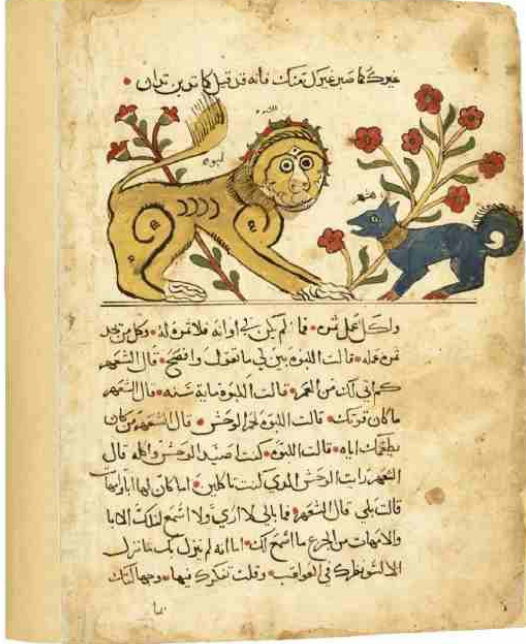 غيرك كما صبر غيرك منك فانه قد قيل كما تدين تدان
اللبوه
لبوه
شعهر
ولكل عمل ثمره فاذا لم يكن في اوانه فلا ثمره له وكل من
ثمره عمله قالت اللبوه بين لي ما تقول وافصح قال الشعهر
كم اتى لك من العمر قالت اللبوه مايه سنه قال الشعهر
ما كان قوتك قالت اللبوه لحم الوحش قال الشعهر من كان
يطعمك اياه قالت اللبوه كنت اصيد الوحش واكله قال
الشعهر رايت الوحش الذي كنت تاكلين اما كان لها ابا وامهات
قالت بلى قال الشعهر فما بالي لا ارى ولا اسمع لتلك الابا
والامهات من الجزع ما اسمع لك اما انه لم ينزل بك ما نزل
الا لسو نظرك في العواقب وقلت تفكرك فيها